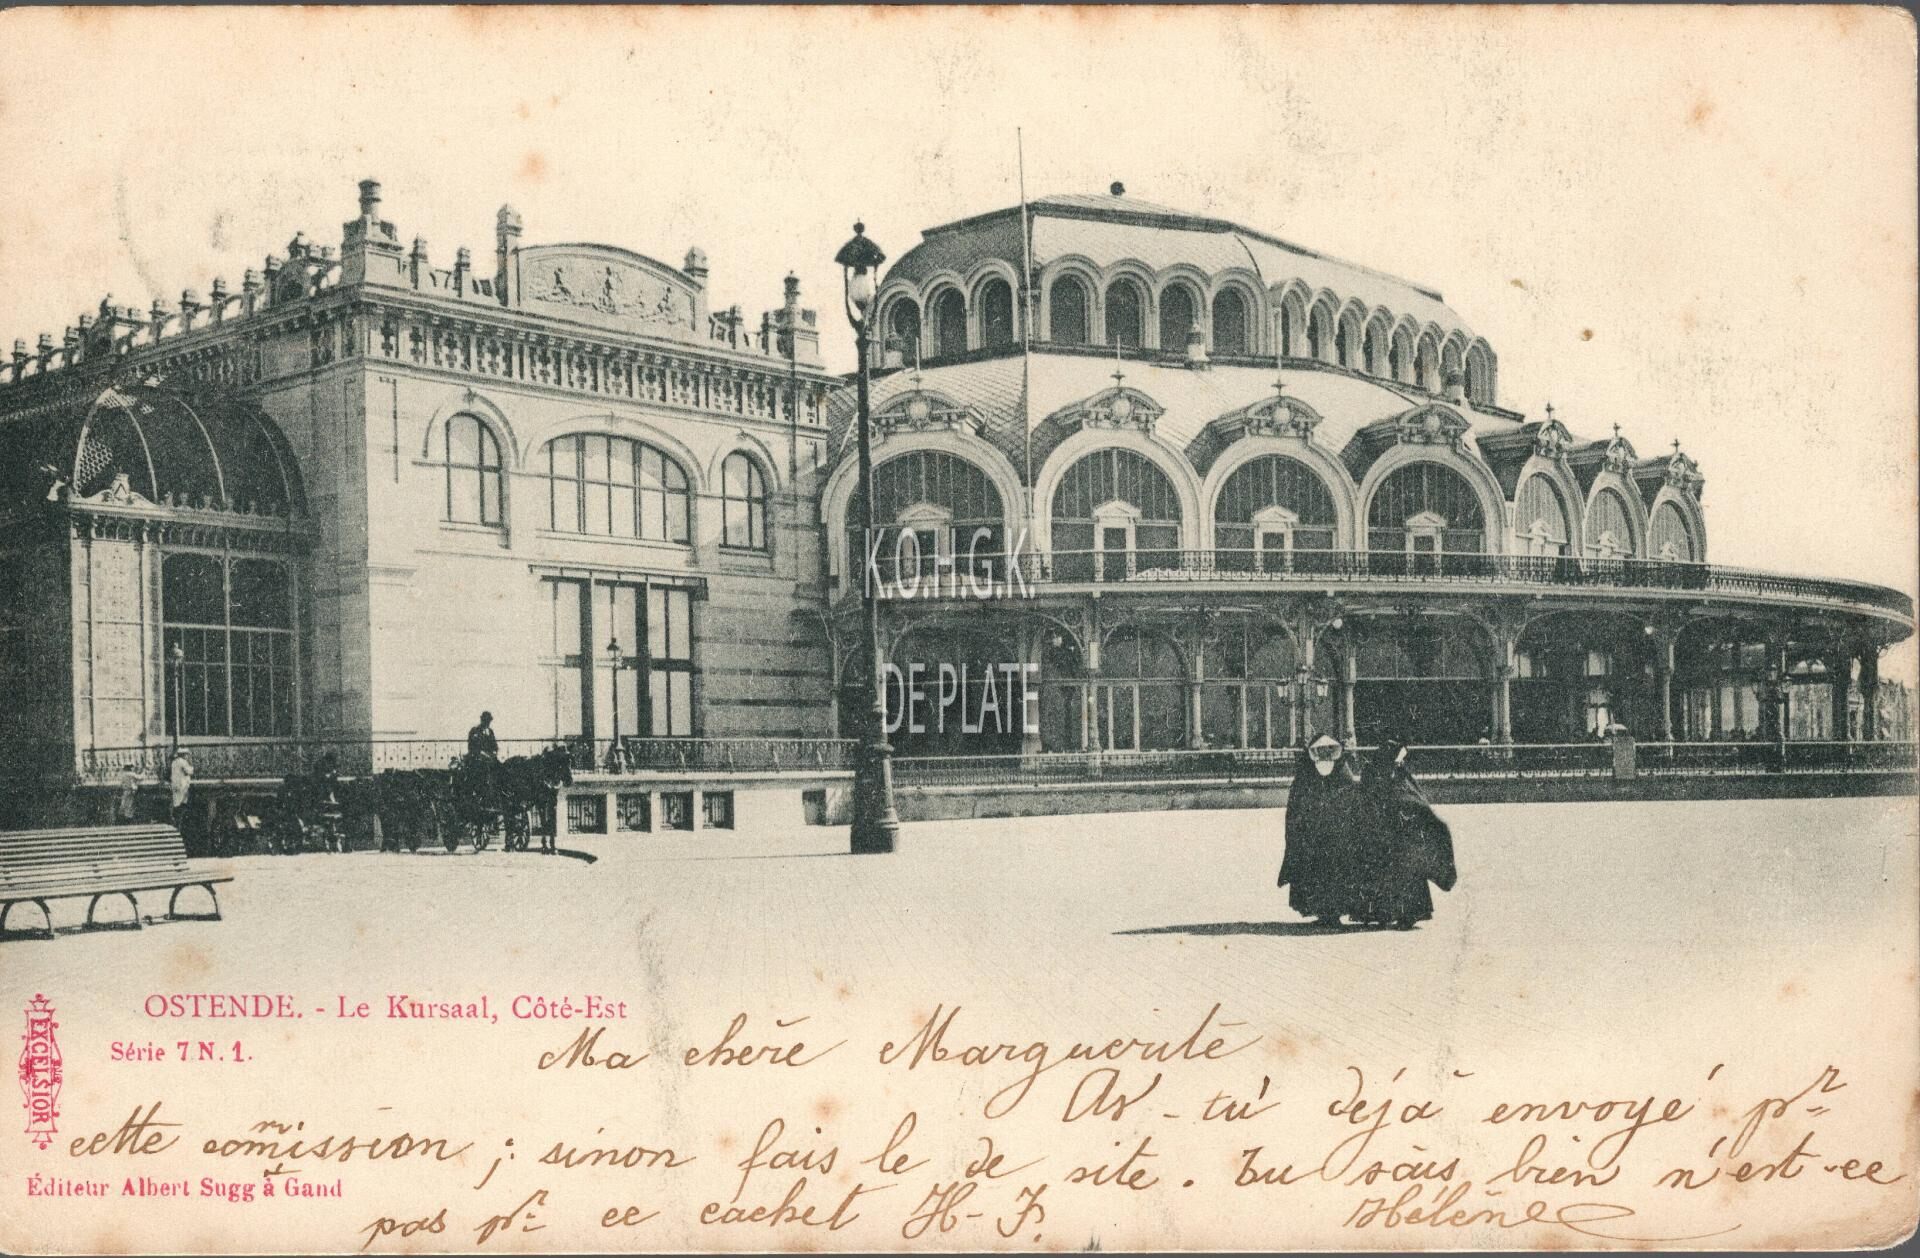 K.O.H.G.K.
DE PLATE
OSTENDE. - Le Kursaal, Côté-Est
Série 7 N. 1.
EXCELSIOR
Ma chère Marguerite
As-tu déjà envoyé pr
cette commission ; sinon fais le de site. Tu sais bien n'est-ce
Éditeur Albert Sugg à Gand
pas pr ce cachet H-F. Hélène